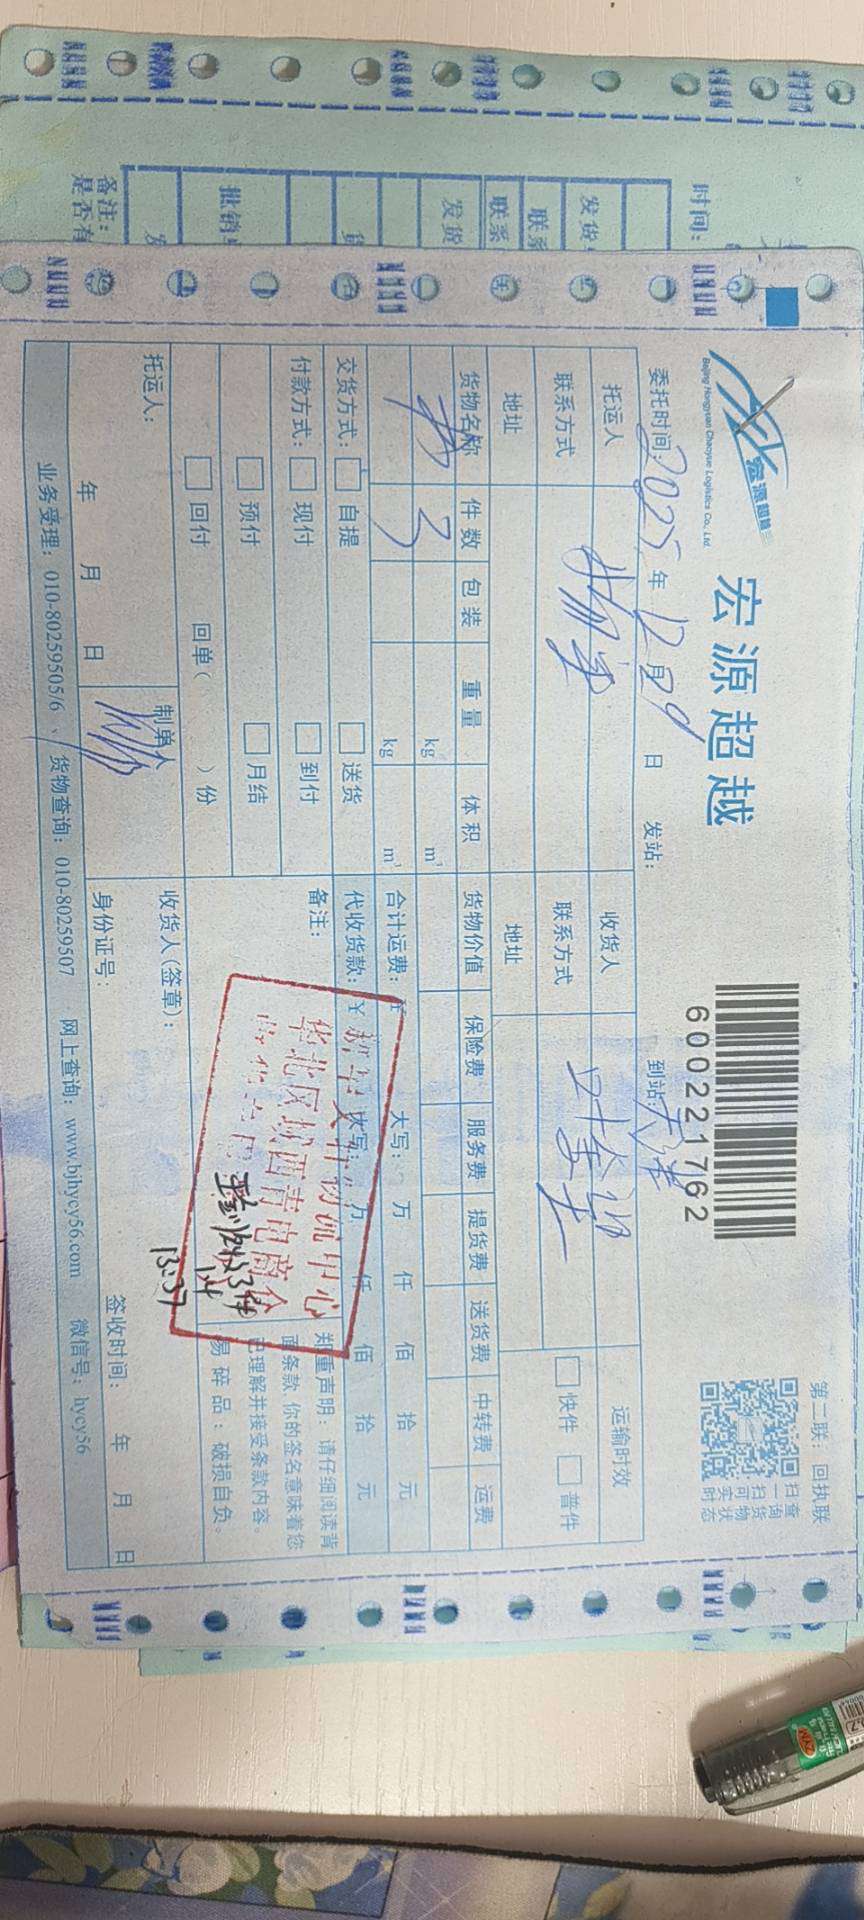 宏源超越
Beijing Hongyuan Chaoyue Logistics Co., Ltd.
宏源超越
600221762
第二联：回执联
扫一扫
查询货物
可实时状态
委托时间：2025年12月29日
发站：
到站：天津
托运人
收货人
运输时效
联系方式
联系方式
快件
普件
地址
地址
货物名称
件数
包装
重量
体积
货物价值
保险费
服务费
提货费
送货费
中转费
运费
书
3
kg
m³
kg
m³
合计运费：¥
大写：
万
仟
佰
拾
元
交货方式：
自提
送货
代收货款：¥
大写：
万
仟
佰
拾
元
付款方式：
现付
到付
备注：
预付
月结
回付
回单（ ）份
郑重声明：请仔细阅读背
面条款，你的签名意味着您
已理解并接受条款内容。
易碎品：破损自负。
新华文轩物流中心
华北区域西青电商仓
13:37
托运人：
制单人
收货人（签章）：
年 月 日
身份证号：
签收时间：
年 月 日
业务受理：010-80259505/6、货物查询：010-80259507 网上查询：www.bjhycy56.com 微信号：hycy56
时间：
发货
联系
联系
发货
批销
备注：
是否有